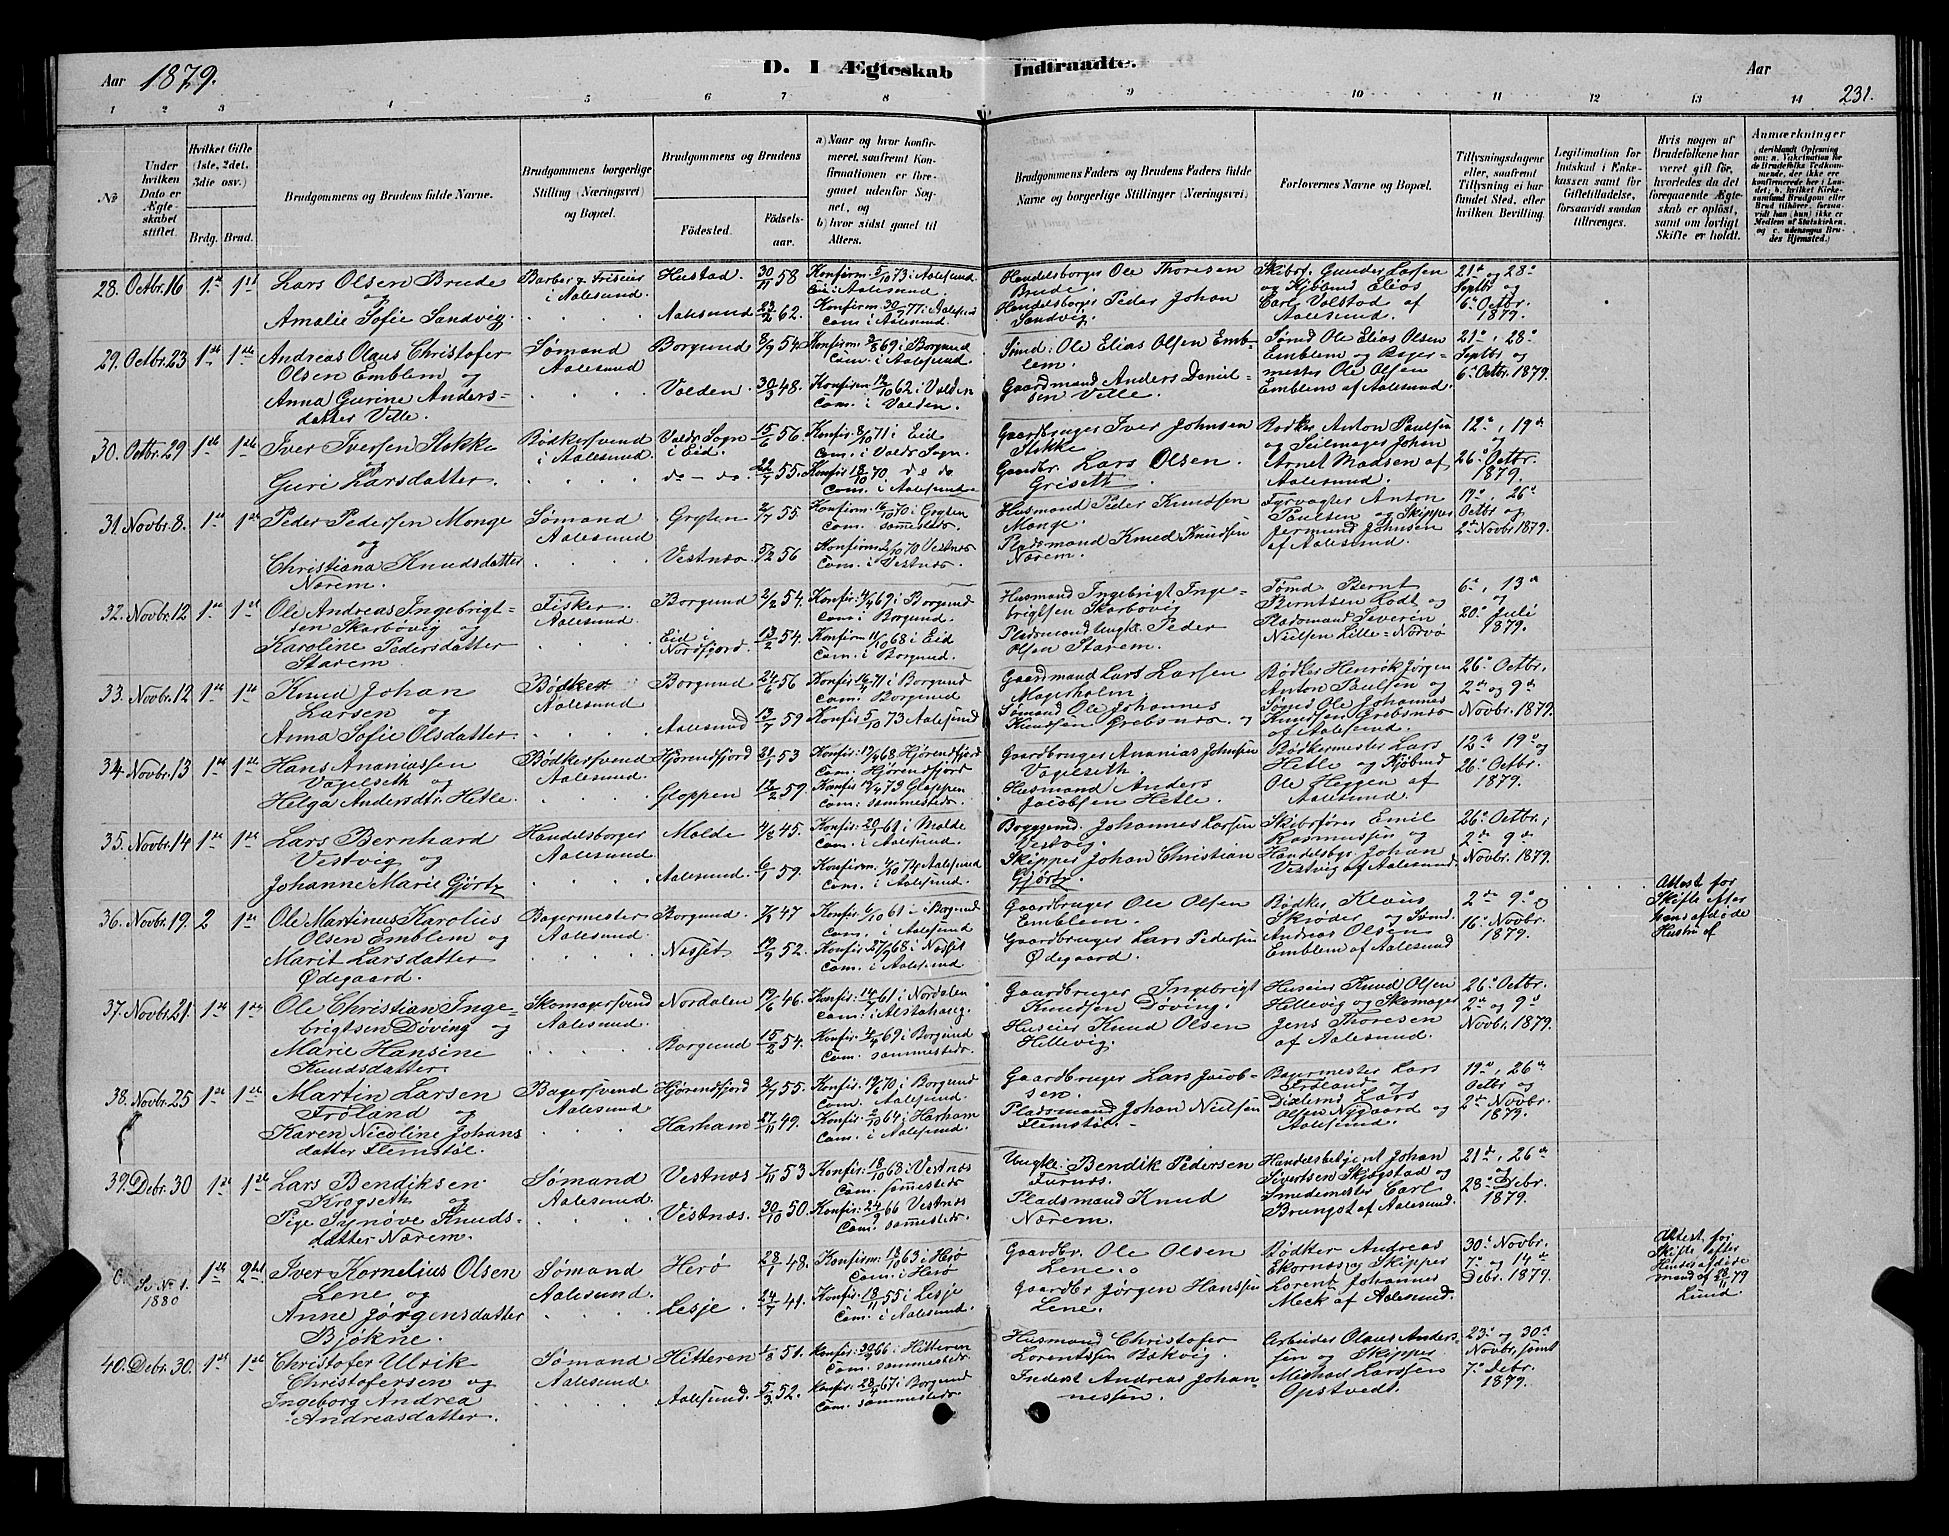 Aar 1879.
D. I Ægteskab Indtraadte.
Aar
231.
1 2 3 4 5 6 7 8 9 10 11 12 13 14
No
Under hvilken Dato er Ægteskabet stiftet.
Hvilket Gifte (1ste, 2det, 3die osv.)
Brdg. Brud.
Brudgommens og Brudens fulde Navne.
Brudgommens borgerlige Stilling (Næringsvei) og Bopæl.
Brudgommens og Brudens
Födested. Födselsaar.
a) Naar og hvor konfirmeret, saafremt Konfirmationen er foregaaet udenfor Sognet, og
b) hvor sidst gaaet til Alters.
Brudgommens Faders og Brudens Faders fulde Navne og borgerlige Stillinger (Næringsvei)
Forlovernes Navne og Bopæl.
Tillysningsdagene eller, saafremt Tillysning ei har fundet Sted, efter hvilken Bevilling.
Legitimation for Indskud i Enkekassen samt for Giftetilladelse, forsaavidt saadan tiltrænges.
Hvis nogen af Brudefolkene har været gift för, hvorledes da det foregaaende Ægteskab er oplöst, samt om lovligt Skifte er holdt.
Anmærkninger
28. Octbr. 16 1ste 1ste Lars Olsen Brude og Amalie Sofie Sandvig.
Barber & Friseier i Aalesund.
Hustad. 30/11 58 Konfirm. 5/10 73 i Aalesund Com. i Aalesund.
Aalesund 23/2 62. Konfirm. 30/9 77 i Aalesund Com. i Aalesund.
Handelsborger Ole Thoresen Brude.
Handelsborger Peder Johan Sandvig.
Skibsf. Gunder Larsen og Kjöbmd Elias Carl Volstad af Aalesund.
21de og 28de Septbr og 6te Octbr. 1879.
29. Octbr. 23 1ste 1ste Andreas Olaus Christofer Olsen Emblem og Anna Gurine Andersdatter Ville.
Sømand Aalesund
Borgund 8/9 54. Konfirm. 69 i Borgund Com. i Aalesund.
Volden 30/3 48. Konfirm. 12/10 62 i Volden Com. i Volden.
Smed. Ole Elias Olsen Emblem.
Gaardmand Anders Danielsen Ville.
Tømd Ole Elias Olsen Emblem og Bagermester Ole Olsen Emblem af Aalesund.
21de, 28de Septbr og 6te Octbr. 1879.
30. Octbr. 29 1ste 1ste Iver Iversen Stokke og Guri Larsdatter.
Bødkersvend i Aalesund.
Volds Sogn i Eid. 15/6 56. Konfir. 8/10 71 i Eid Com. i Volds Sogn.
do - do. 22/7 55. Konfir. 18/10 70 do do Com. i Aalesund.
Gaardbruger Iver Johnsen Stokke
Gaardbr. Lars Olsen Griseth.
Bødker Anton Paulsen og Seilmager Johan Arnet Madsen af Aalesund.
12te, 19de og 26de Octbr. 1879.
31. Novbr. 8. 1ste 1ste Peder Pedersen Monge og Christiana Knudsdatter Nærem.
Sømand Aalesund
Grytten 2/7 55. Konfirm. 16/10 70 i Grytten Com. sammesteds.
Vestnæs 5/2 56 Konfirm. 2/10 70 Vestnæs Com. i Vestnæs.
Husmand Peder Knudsen Monge.
Pladsmand Knud Knudsen Nærem.
Fyrvogter Anton Paulsen og Skipper Jermund Johnsen af Aalesund.
19de, 26de Octbr og 2de Novbr 1879.
32. Novbr. 12 1ste 1ste Ole Andreas Ingebrigtsen Skarbøvig og Karoline Pedersdatter Starem.
Fisker. Aalesund.
Borgund 2/2 54. Konfir. 4/4 69 i Borgund Com. i Borgund.
Eid i Nordfjord. 13/2 54. Konfir. 11/10 68 i Eid Com. i Borgund.
Husmand Ingebrigt Ingebrigtsen Skarbøvig
Pladsmand Ungk. Peder Olsen Starem.
Tømd Bernt Berntsen Rödt og Pladsmand Severin Nielsen Lille-Nörvö
6te, 13de og 20de Juli 1879.
33. Novbr. 12 1ste 1ste Knud Johan Larsen og Anna Sofie Olsdatter.
Bødker Aalesund
Borgund 24/6 56 Konfir. 16/4 71 i Borgund Com. Borgund
Aalesund 13/7 59 Konfir. 5/10 73 Aalesund
Gaardmand Lars Larsen Magerholm
Sømand Ole Johannes Knudsen Grebsnæs.
Bødker Henrik Jørgen Anton Paulsen og Sømd Ole Johannes Knudsen Grebsnæs af Aalesund.
26de Octbr. 2de og 9de Novbr. 1879.
34. Novbr. 13 1ste 1ste Hans Ananiassen Vogeseth og Helga Andersdtr. Hetle.
Bødkersvend Aalesund.
Hjørendfjord 21/1 53 Konfir. 68 Hjørendfjord Com. Hjørendfjord
Gloppen 13/2 59. Konfir. 73 Gloppen Com. sammesteds.
Gaardbruger Ananias Johnsen Vogeseth.
Husmand Anders Jacobsen Hetle.
Bødkermester Lars Hetle og Kjöbmd Ole Heggen af Aalesund.
12te 19de og 26de Octbr. 1879.
35. Novbr. 14 1ste 1ste Lars Bernhard Vestvig og Johanne Marie Gjørtz
Handelsborger Aalesund.
Molde 4/8 45. Konfir. 61 i Molde Com. i Aalesund.
Aalesund. 6/1 59. Konfirm. 4/10 74 Aalesund Com. i Aalesund
Byggemd. Johannes Larsen Vestvig.
Skipper Johan Christian Gjørtz.
Skibsfører Emil Rasmussen og Handelsbgr. Johan Vestvig af Aalesund.
26de Octbr. 2de 9de Novbr. 1879.
36. Novbr. 19. 2 1ste Ole Martinus Karolius Olsen Emblem og Marit Larsdatter Ødegaard.
Bagermester Aalesund.
Borgund. 47 Konfir. 6/10 61 i Borgund Com. i Aalesund
Nesset 19/9 52. Konfir. 27/9 68 i Nesset Com. i Aalesund
Gaardbruger Ole Olsen Emblem.
Gaardbruger Lars Pedersen Ødegaard.
Bødker Klaus Skrøder og Sømd Andreas Olsen Emblem af Aalesund
2de 9de og 16de Novbr. 1879.
Attest for Skifte efter hans afdøde Hustru af
37. Novbr. 21. 1ste 1ste Ole Christian Ingebrigtsen Døving og Marie Hansine Knudsdatter.
Skomagersvend Aalesund.
Nordalen 19/6 46. Konfir. 14/7 61 i Nordalen Com. i Alstahaug.
Borgund 15/2 54. Konfir. 4/4 69. i Borgund Com. sammesteds.
Gaardbruger Ingebrigt Knudsen Døving.
Huseier Knud Olsen Hellevig.
Huseier Knud Olsen Hellevig og Skomager Jens Thoresen af Aalesund.
26de Octbr. 2de og 9de Novbr. 1879.
38. Novbr. 25 1ste 1ste Martin Larsen Frøland og Karen Nicoline Johansdatter Flemstøl.
Bagersvend Aalesund
Hjørendfjord 2/7 55. Konfir. 19/6 70 i Borgund Com. Aalesund.
Harham 27/11 49. Konfir. 2/10 64 i Harham Com. i Aalesund.
Gaardbruger Lars Jacobsen.
Pladsmand Johan Nielsen Flemstøl.
Bagermester Lars Frøland og Lars Olsen Nygaard og Aalesund.
19de, 26de Octbr og 2de Novbr. 1879.
39. Debr. 30 1ste 1ste Lars Bendiksen Krogseth og Pige Synøve Knudsdatter Nærem.
Sømand Aalesund.
Vestnæs 7/11 53 Konfir. 18/10 68 i Vestnæs Com. sammesteds
Vestnæs. 30/10 50. Konfir. 24/9 66 Vestnæs Com. sammesteds.
Ungkl. Bendik Pedersen Furnes.
Pladsmand Knud Nærem.
Handelsbetjent Johan Sivertsen Skogstad og Smedemester Carl Brungot af Aalesund.
21de, 26de og 28de Debr. 1879.
Se No 1. 1880 1ste 2det Iver Kornelius Olsen Lene og Anne Jørgensdatter Bjøkne.
Sømand Aalesund.
Herø 28/1 48. Konfirm. 18/10 63 i Herø Com. i Herø
Lesje. 24/7 41. Konfir. 18/11 55 i Lesje Com. i Aalesund.
Gaardbr. Ole Olsen Lene.
Gaardbr Jørgen Hanssen Lene.
Bødker Andreas Ekornæs og Skipper Lorent Johannes Meek af Aalesund.
30te Novbr. 7de og 14de Debr. 1879.
Attest for Skifte efter Hendes afdøde mand af 28/11 79 Lund
40. Debr. 30. 1ste 1ste Christofer Ulrik Christofersen og Ingeborg Andrea Andreasdatter.
Sømand Aalesund
Hitteren 1/8 51. Konfir. 30/9 66 i Hitteren Com. sammesteds
Aalesund. 5/3 52. Konfir. 28/4 67 i Borgund Com. sammesteds
Husmand Christofer Lorentssen Bakvig.
Inderst Andreas Johannessen.
Arbeider Olaus Anderssen og Skipper Michael Larssen Opstvedt.
23de og 30te Novbr. samt 7de Debr. 1879.